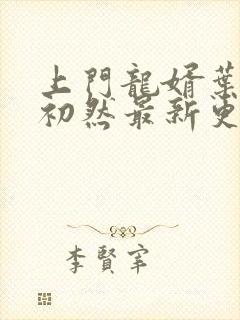 上門龍婿葉
初然最新更
李賢宰